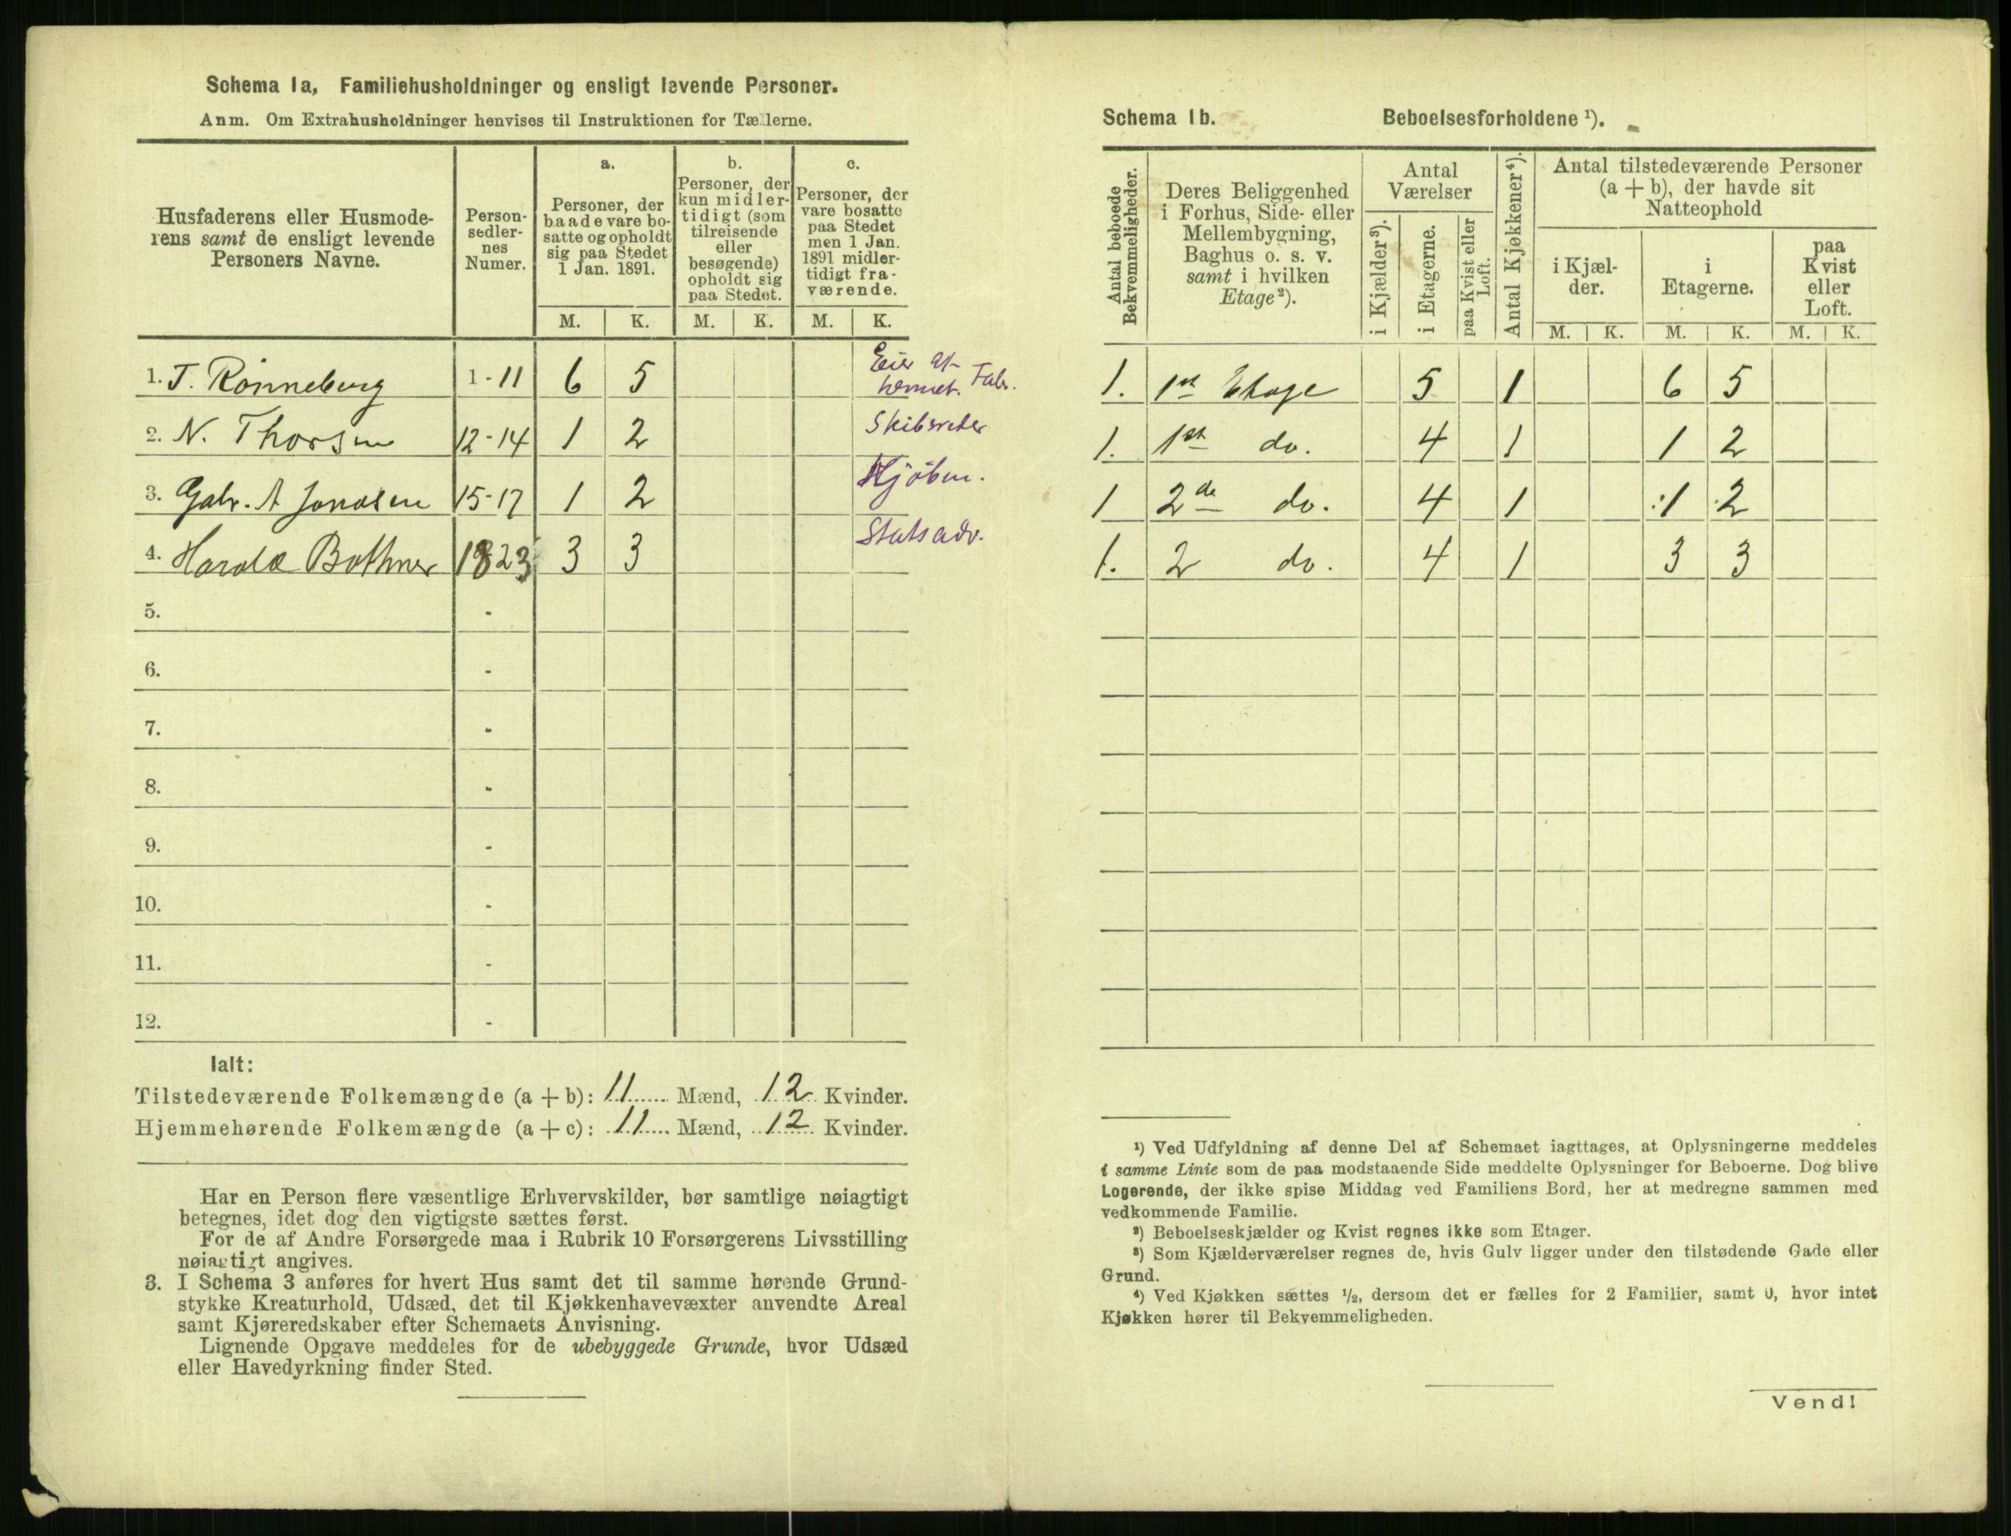 Schema 1a, Familiehusholdninger og ensligt levende Personer.
Anm. Om Extrahusholdninger henvises til Instruktionen for Tællerne.
Husfaderens eller Husmode-
rens samt de ensligt levende
Personers Navne.
Person-
sedler-
nes
Numer.
a.
Personer, der
baade vare bo-
satte og opholdt
sig paa Stedet
1 Jan. 1891.
b.
Personer, der
kun midler-
tidigt (som
tilreisende
eller
besøgende)
opholdt sig
paa Stedet.
c.
Personer, der
vare bosatte
paa Stedet
men 1 Jan.
1891 midler-
tidigt fra-
værende.
M. K. M. K. M. K.
1. T. Rønneberg 1-11 6 5 Eier Fabr.
2. N. Thorsen 12-14 1 2 Skibsreder
3. Gabr. A Jonasen 15-17 1 2 Kjøbm.
4. Harald Bothner 1823 3 3 Statsadv.
5. -
6. -
7. -
8. -
9. -
10. -
11. -
12. -
Ialt:
Tilstedeværende Folkemængde (a + b): 11 Mænd, 12 Kvinder.
Hjemmehørende Folkemængde (a + c): 11 Mænd, 12 Kvinder.
Har en Person flere væsentlige Erhvervskilder, bør samtlige nøiagtigt
betegnes, idet dog den vigtigste sættes først.
For de af Andre Forsørgede maa i Rubrik 10 Forsørgerens Livsstilling
nøiagtigt angives.
3. I Schema 3 anføres for hvert Hus samt det til samme hørende Grund-
stykke Kreaturhold, Udsæd, det til Kjøkkenhavevæxter anvendte Areal
samt Kjøreredskaber efter Schemaets Anvisning.
Lignende Opgave meddeles for de ubebyggede Grunde, hvor Udsæd
eller Havedyrkning finder Sted.
Schema 1b. Beboelsesforholdene ¹).
Antal beboede
Bekvemmeligheder.
Deres Beliggenhed
i Forhus, Side- eller
Mellembygning,
Baghus o. s. v.
samt i hvilken
Etage²).
Antal
Værelser
i Kjælder³).
i Etagerne.
paa Kvist eller
Loft.
Antal Kjøkkener⁴).
Antal tilstedeværende Personer
(a + b), der havde sit
Natteophold
i Kjæl-
der.
i
Etagerne.
paa
Kvist
eller
Loft.
M. K. M. K. M. K.
1. 1st Etage 5 1 6 5
1. 1st do. 4 1 1 2
1 2de do. 4 1 1 2
1. 2 do. 4 1 3 3
¹) Ved Udfyldning af denne Del af Schemaet iagttages, at Oplysningerne meddeles
i samme Linie som de paa modstaaende Side meddelte Oplysninger for Beboerne. Dog blive
Logerende, der ikke spise Middag ved Familiens Bord, her at medregne sammen med
vedkommende Familie.
²) Beboelseskjælder og Kvist regnes ikke som Etager.
³) Som Kjælderværelser regnes de, hvis Gulv ligger under den tilstødende Gade eller
Grund.
⁴) Ved Kjøkken sættes ½, dersom det er fælles for 2 Familier, samt 0, hvor intet
Kjøkken hører til Bekvemmeligheden.
Vend!